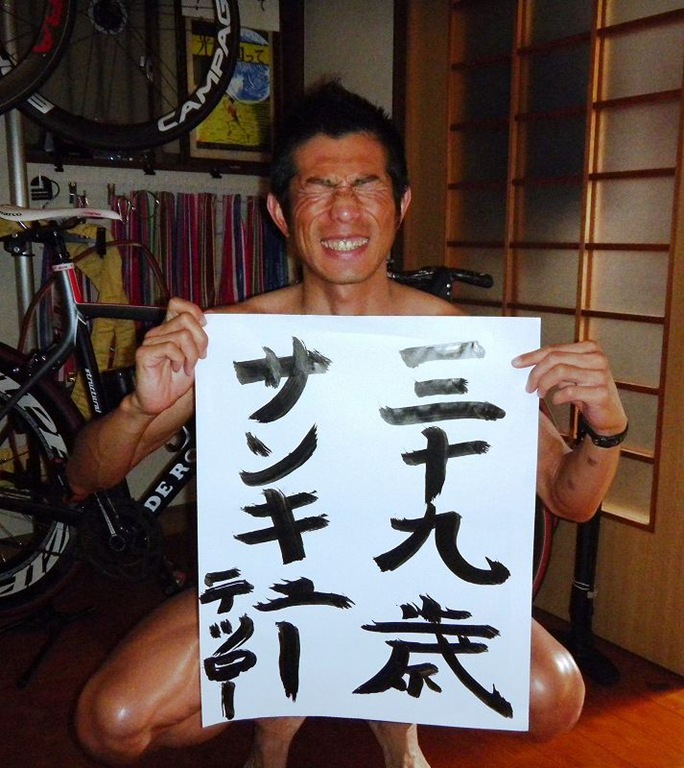 三十九歳
サンキュー
テツロー
CAMPAG
DE RO